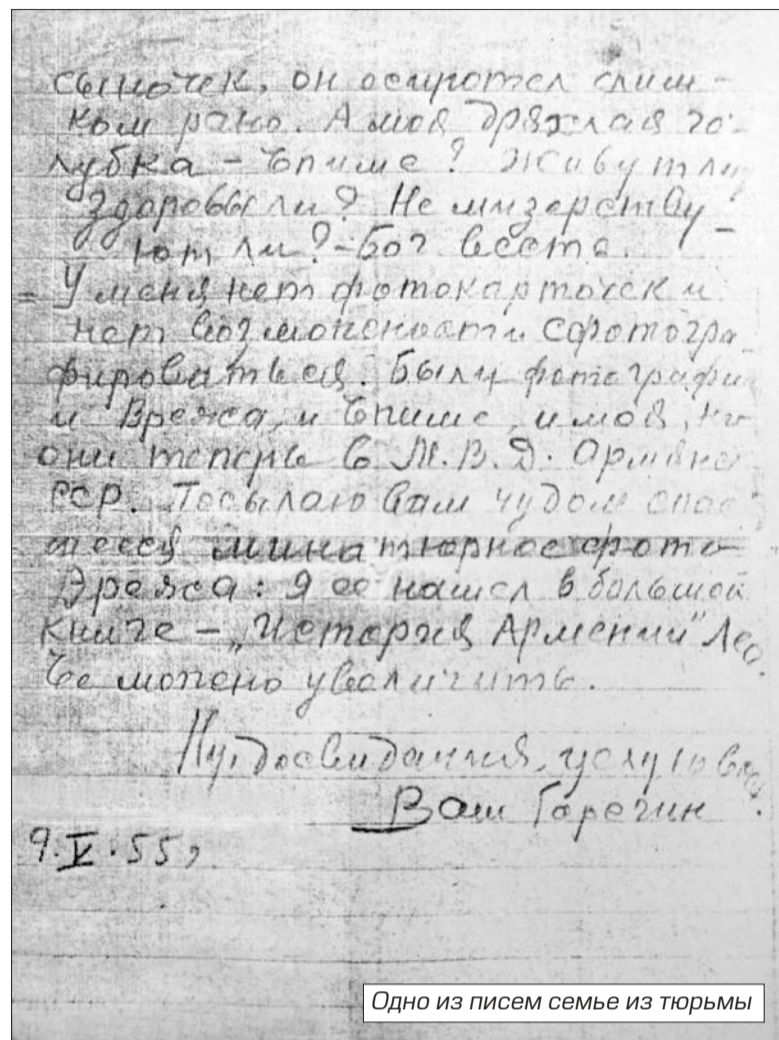 сыночек, он осиротел слиш-
ком рано. А моя дряхлая го-
лубка – Епиме? Живут ли,
здоровы ли? Не мизерству-
ют ли? – Бог весть.
= У меня нет фотокарточек и
нет возможности сфотогра
фироваться. Были фотографии
и Врежа, и Епиме, и моя, но
они теперь в М.В.Д. Армянс
ССР. Посылаю Вам чудом спас
шееся миниатюрное фото
Врежа: Я ее нашел в большой
книге – „История Армении" Лео.
Ее можно увеличить.
Ну, досвидания, целую вас.
Ваш Гарегин
9.V.55,
Одно из писем семье из тюрьмы